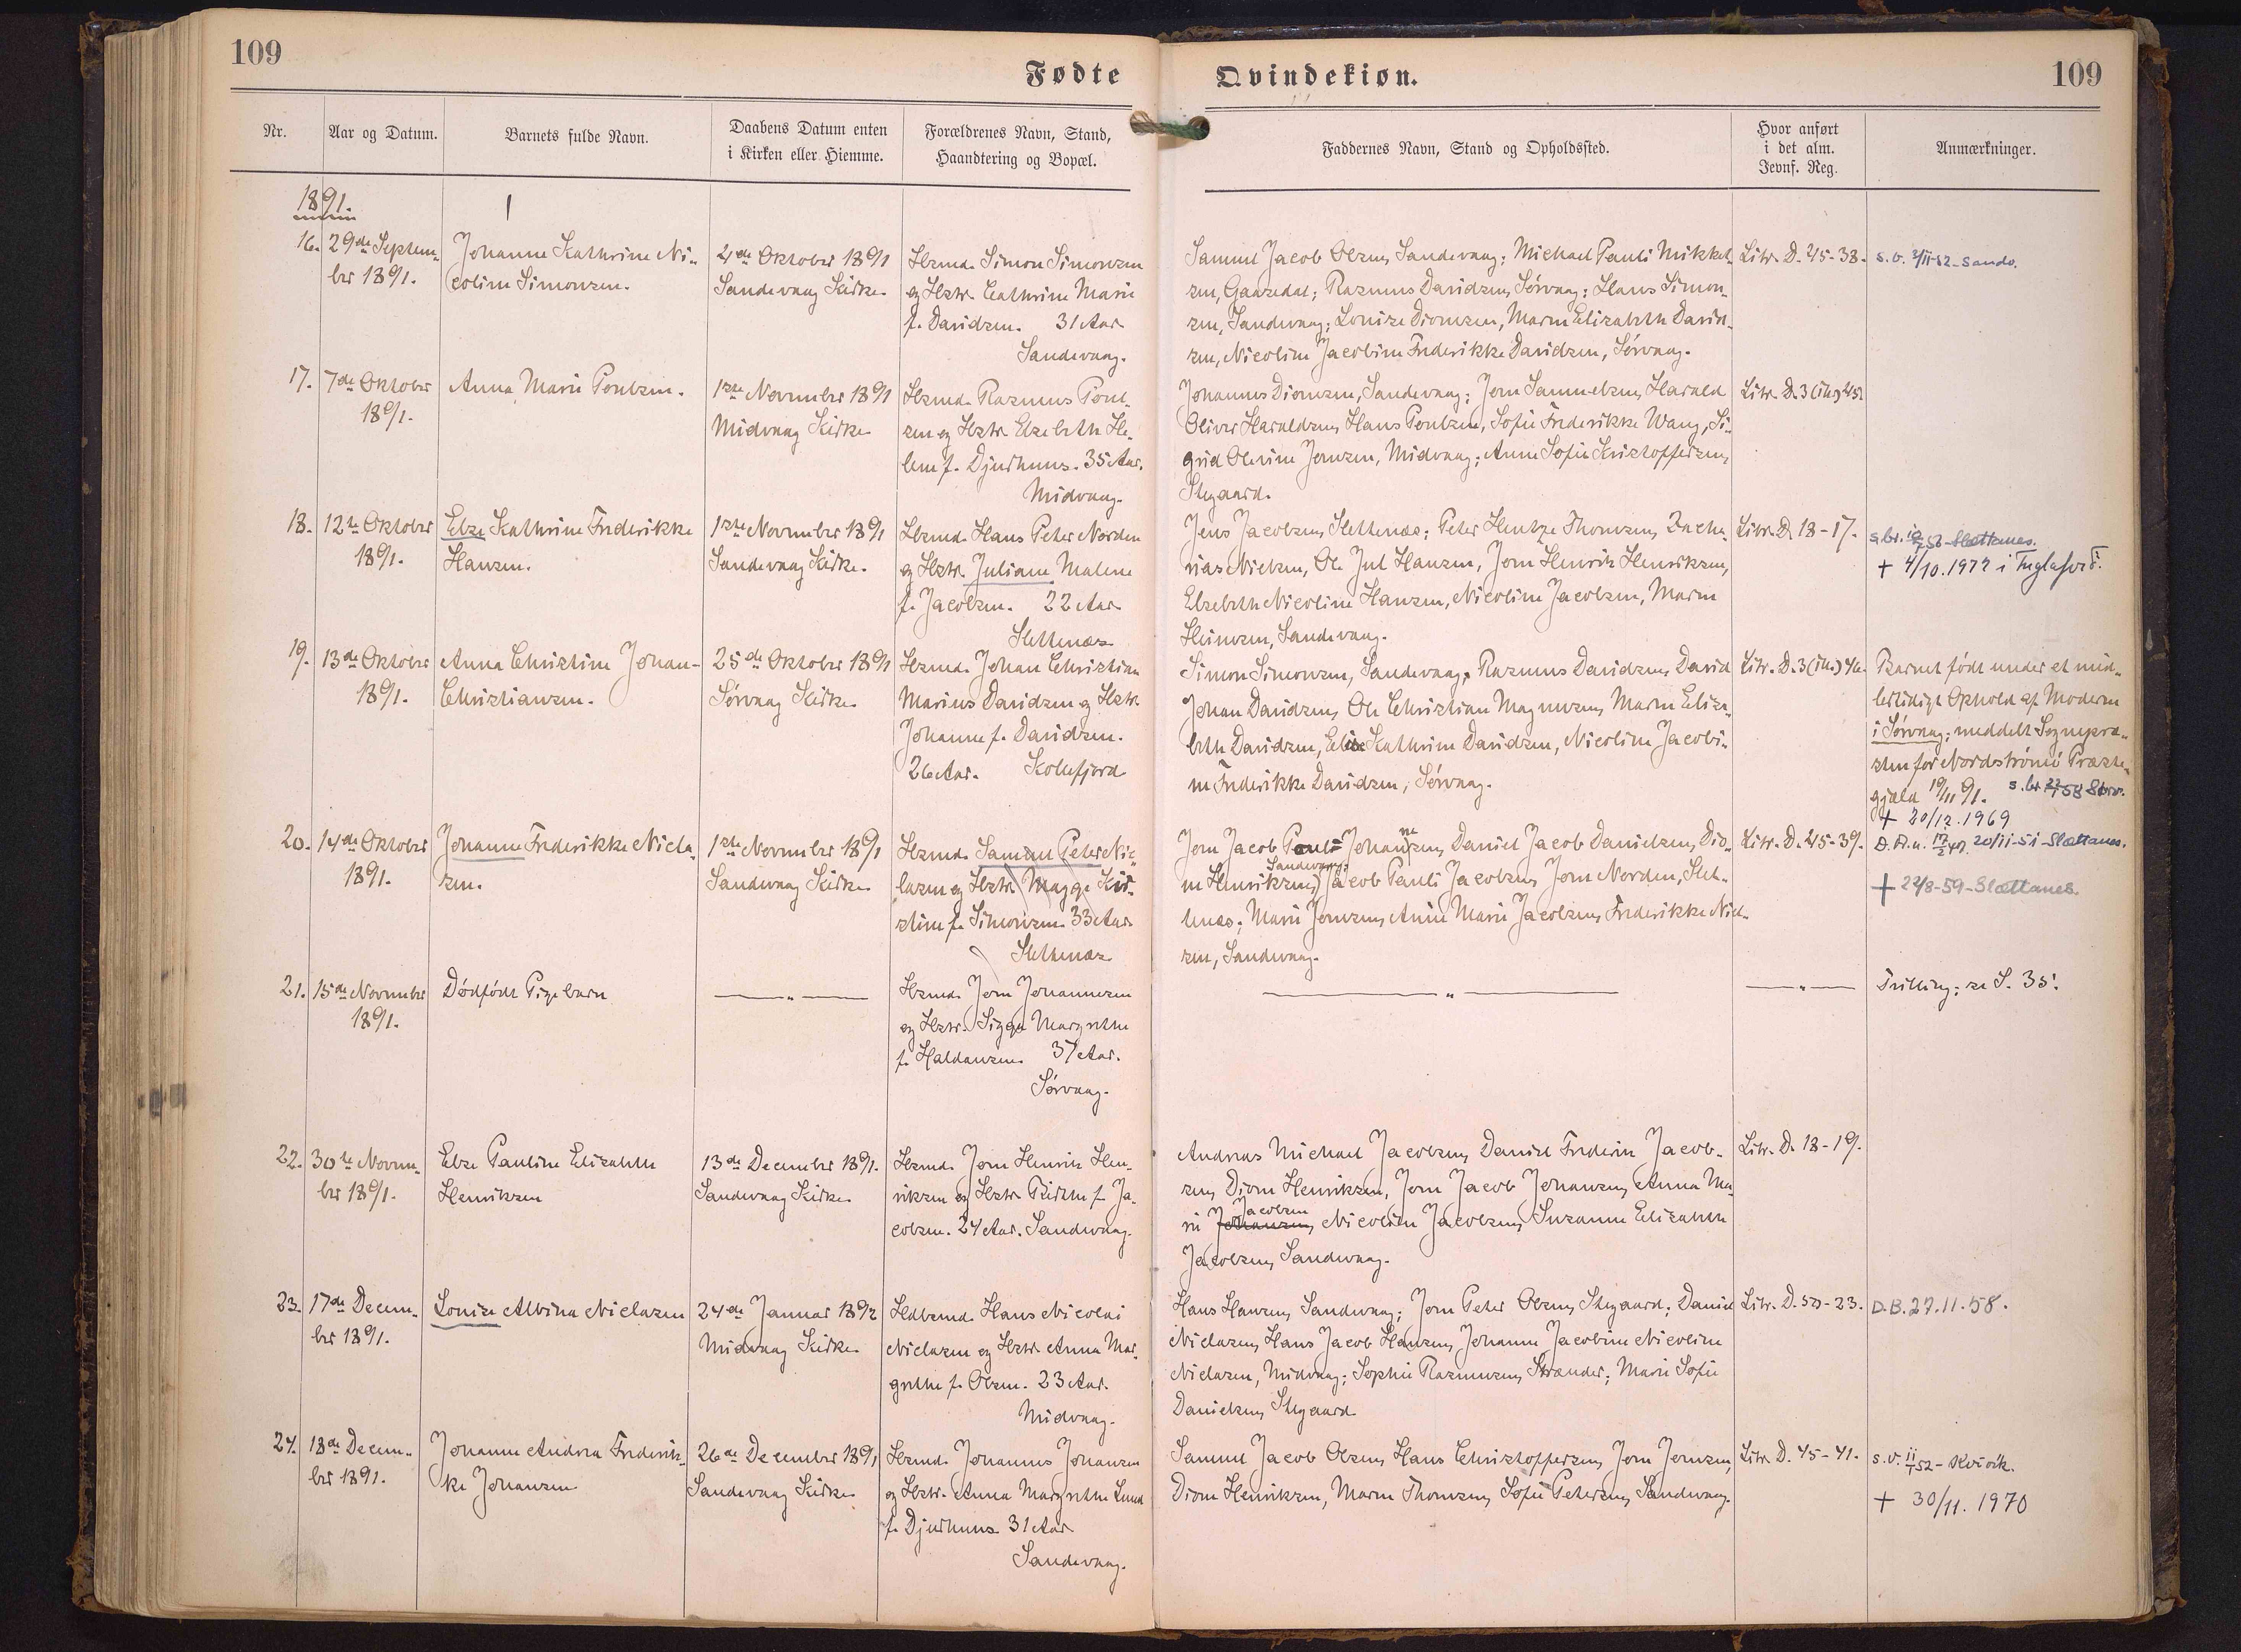 109
Fødte
Qvindekiøn.
109
Nr.
Aar og Datum.
Barnets fulde Navn.
Daabens Datum enten
i Kirken eller Hiemme.
Forældrenes Navn, Stand,
Haandtering og Bopæl.
Faddernes Navn, Stand og Opholdssted.
Hvor anført
i det alm.
Jevnf. Reg.
Anmærkninger.
1891.
16.
29de Septem-
ber 1891.
Johanne Kathrine Ni-
coline Simonsen.
4de Oktober 1891
Sandevaag Kirke
Hsmd. Simon Simonsen
og Hstr. Cathrine Marie
f. Davidsen. 31 Aar
Sandevaag.
Samuel Jacob Olsen, Sandevaag; Michael Pauli Mikkel-
sen, Gaasedal; Rasmus Davidsen, Sørvaag; Hans Simon-
sen, Sandevaag; Louise Dionsen, Maren Elisabeth David-
sen, Nicoline Jacobine Frederikke Davidsen, Sørvaag.
Litr. D. 45-38.
s.v. 2/11-52-Sandv.
17.
7de Oktober
1891.
Anna Marie Poulsen.
1ste November 1891
Midvaag Kirke
Hsmd. Rasmus Poul-
sen og Hstr. Elsebeth He-
lene f. Djurhuus. 35 Aar.
Midvaag.
Johannes Dionsen, Sandevaag; Joen Samuelsen, Harald
Oliver Haraldsen, Hans Poulsen, Sofie Frederikke Wang, Si-
grid Olevine Joensen, Midvaag; Anne Sofie Kristoffersen,
Stegaard.
Litr. D. 3(ike) 45.
18.
12te Oktober
1891.
Else Kathrine Frederikke
Hansen.
1ste November 1891
Sandevaag Kirke.
Hsmd. Hans Peter Norden
og Hstr. Juliane Malene
f. Jacobsen. 22 Aar
Slettenæs
Jens Jacobsen, Slettenæs; Peter Hentze Thomsen, Zacha-
rias Nielsen, Ole Jul Hansen, Joen Henrik Henriksen,
Elsebeth Nicoline Hansen, Nicoline Jacobsen, Maren
Heinesen, Sandevaag.
Litr. D. 18-17.
+ 4/10.1972 i Fuglafirði.
19.
13de Oktober
1891.
Anna Christine Johan-
Christiansen.
25de Oktober 1891
Sørvaag Kirke
Hsmd. Johan Christian
Marius Davidsen og Hstr.
Johanne f. Davidsen.
26 Aar. Kollefjord
Simon Simonsen, Sandevaag, Rasmus Davidsen, David
Johan Davidsen, Ole Christian Magnusen, Maren Elisa-
beth Davidsen, Elise Kathrine Davidsen, Nicoline Jacobi-
ne Frederikke Davidsen, Sørvaag.
Litr. D. 3(ike) 46.
Barnet født under et mid-
lertidigt Ophold af Moderen
i Sørvaag; meddelt Sognepræ-
sten for Nordstrømø Præste-
gjæld 19/11 91. s.br 22/1 58
+ 20/12.1969
20.
14de Oktober
1891.
Johanne Frederikke Nicla-
sen.
1ste November 1891
Sandevaag Kirke
Hsmd. Samuel Peter Nic-
lasen og Hstr. Magga Kir-
stine f. Simonsen. 33 Aar
Slettenæs
Joen Jacob Pauli Johannesen, Daniel Jacob Danielsen, Dio-
n Henriksen, Sandevaag; Jacob Pauli Jacobsen, Joen Norden, Slet-
tenæs; Marie Joensen, Anne Marie Jacobsen, Frederikke Niel-
sen, Sandevaag.
Litr. D. 45-39.
D.A.u. 17/2 47, 20/11-51-Slættanes.
+ 22/8-59-Slættanes.
21.
15de November
1891.
Dødfødt Pigebarn
— „ —
Hsmd. Joen Johannesen
og Hstr. Sigga Margrethe
f. Haldansen. 37 Aar.
Sørvaag.
— „ —
— „ —
Trilling; se S. 35.
22.
30te Novem-
ber 1891.
Else Pauline Elisabeth
Henriksen
13de December 1891.
Sandevaag Kirke
Hsmd. Joen Henrik Hen-
riksen og Hstr. Birthe f. Ja-
cobsen. 24 Aar. Sandevaag.
Andreas Michael Jacobsen, Daniel Frederik Jacob-
sen, Dion Henriksen, Joen Jacob Johansen, Anna Ma-
rie Johansen, Jacobsen Nicoline Jacobsen, Susanne Elisabeth
Jacobsen, Sandevaag.
Litr. D. 18-19.
23.
17de Decem-
ber 1891.
Louise Albina Niclasen
24de Januar 1892
Midvaag Kirke
Hdlsmd. Hans Nicolai
Niclasen og Hstr. Anna Mar-
grethe f. Olsen. 23 Aar.
Midvaag.
Hans Hansen, Sandevaag; Joen Peter Olsen, Stegaard; Daniel
Niclasen, Hans Jacob Hansen, Johanne Jacobine Nicoline
Niclasen, Midvaag; Sophie Rasmussen, Strænder; Marie Sofie
Danielsen, Stegaard
Litr. D. 50-23.
D.B. 27.11.58.
24.
18de Decem-
ber 1891.
Johanne Andrea Frederik-
ke Johansen
26de December 1891
Sandevaag Kirke
Hsmd. Johannes Johansen
og Hstr. Anna Margrethe Lund
f. Djurhuus 31 Aar
Sandevaag.
Samuel Jacob Olsen, Hans Christoffersen, Joen Joensen,
Dion Henriksen, Maren Thomsen, Sofie Petersen, Sandevaag.
Litr. D. 45-41.
s.v. 11/1 52-Kvívík.
+ 30/11.1970